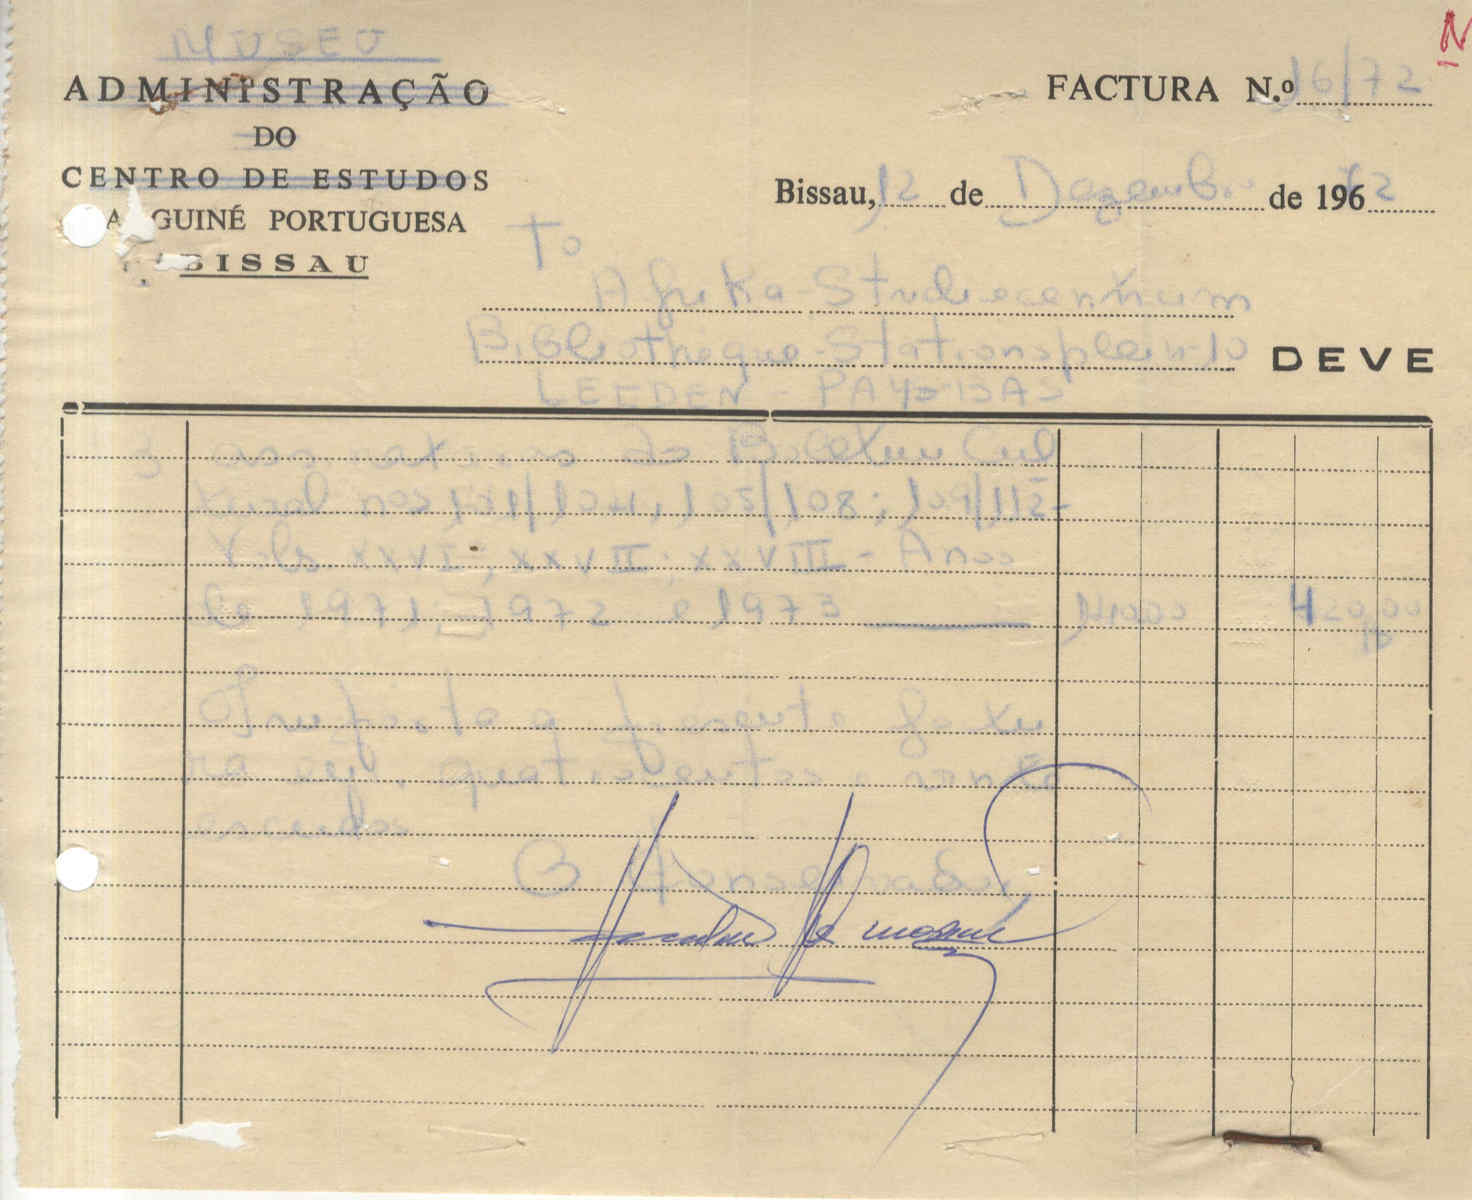 MUSEU
ADMINISTRAÇÃO
DO
CENTRO DE ESTUDOS
A GUINÉ PORTUGUESA
BISSAU
N
FACTURA N.º 16/72
Bissau, 12 de Dezembro de 1972
To
Afrika-Studiecentrum
Bibliotheque-Stationsplein-10
LEEDEN - PAYS-BAS
DEVE
3 assinaturas do Boletim Cul
tural nos 101/104; 105/108; 109/112-
Vols. XXVI; XXVII; XXVIII - Anos
de 1971, 1972 e 1973 140$00 420$00
Importa a presente factu
ra em quatrocentos e vinte
escudos
O